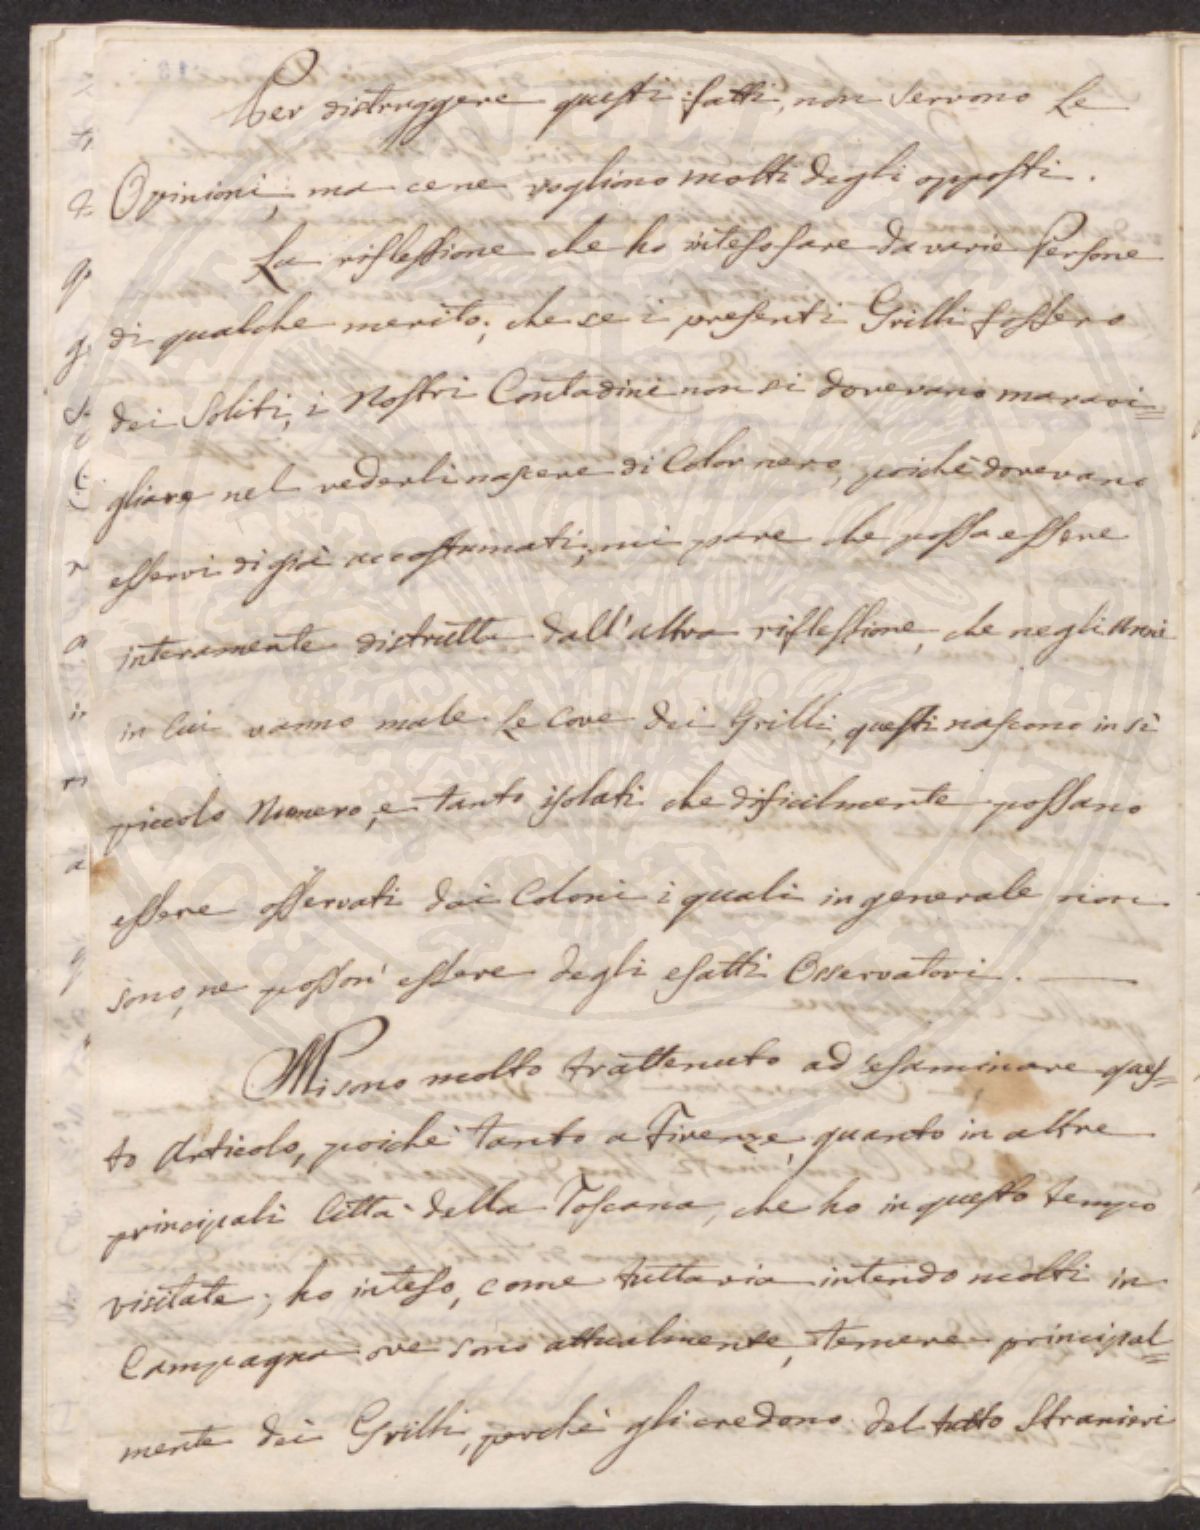 Per distruggere questi fatti, non servono le
Opinioni, ma cene vogliono molti degli opposti.
La riflessione che ho inteso fare da varie Persone
di qualche merito; che se i presenti Grilli fossero
dei Soliti, i Nostri Contadini non si dovevano maravi=
gliare nel vederli nascere di Color nero, poichè dovevano
esservi di già accostumati; mi pare che possa essere
interamente distrutta dall'altra riflessione, che negli Anni
in Cui vanno male le Cove dei Grilli, questi nascono in sì
piccolo Numero, e tanto isolati che dificilmente possano
essere osservati dai Coloni i quali in generale non
sono, ne posson' essere degli esatti Osservatori.
Mi sono molto trattenuto ad esaminare ques=
to Articolo, poichè tanto a Firenze, quanto in altre
principali Città della Toscana, che ho in questo tempo
visitate; ho inteso, come tuttavia intendo molti in
Campagna ove sono attualmente, temere principal=
mente dei Grilli, perchè gli credono del tutto Stranieri